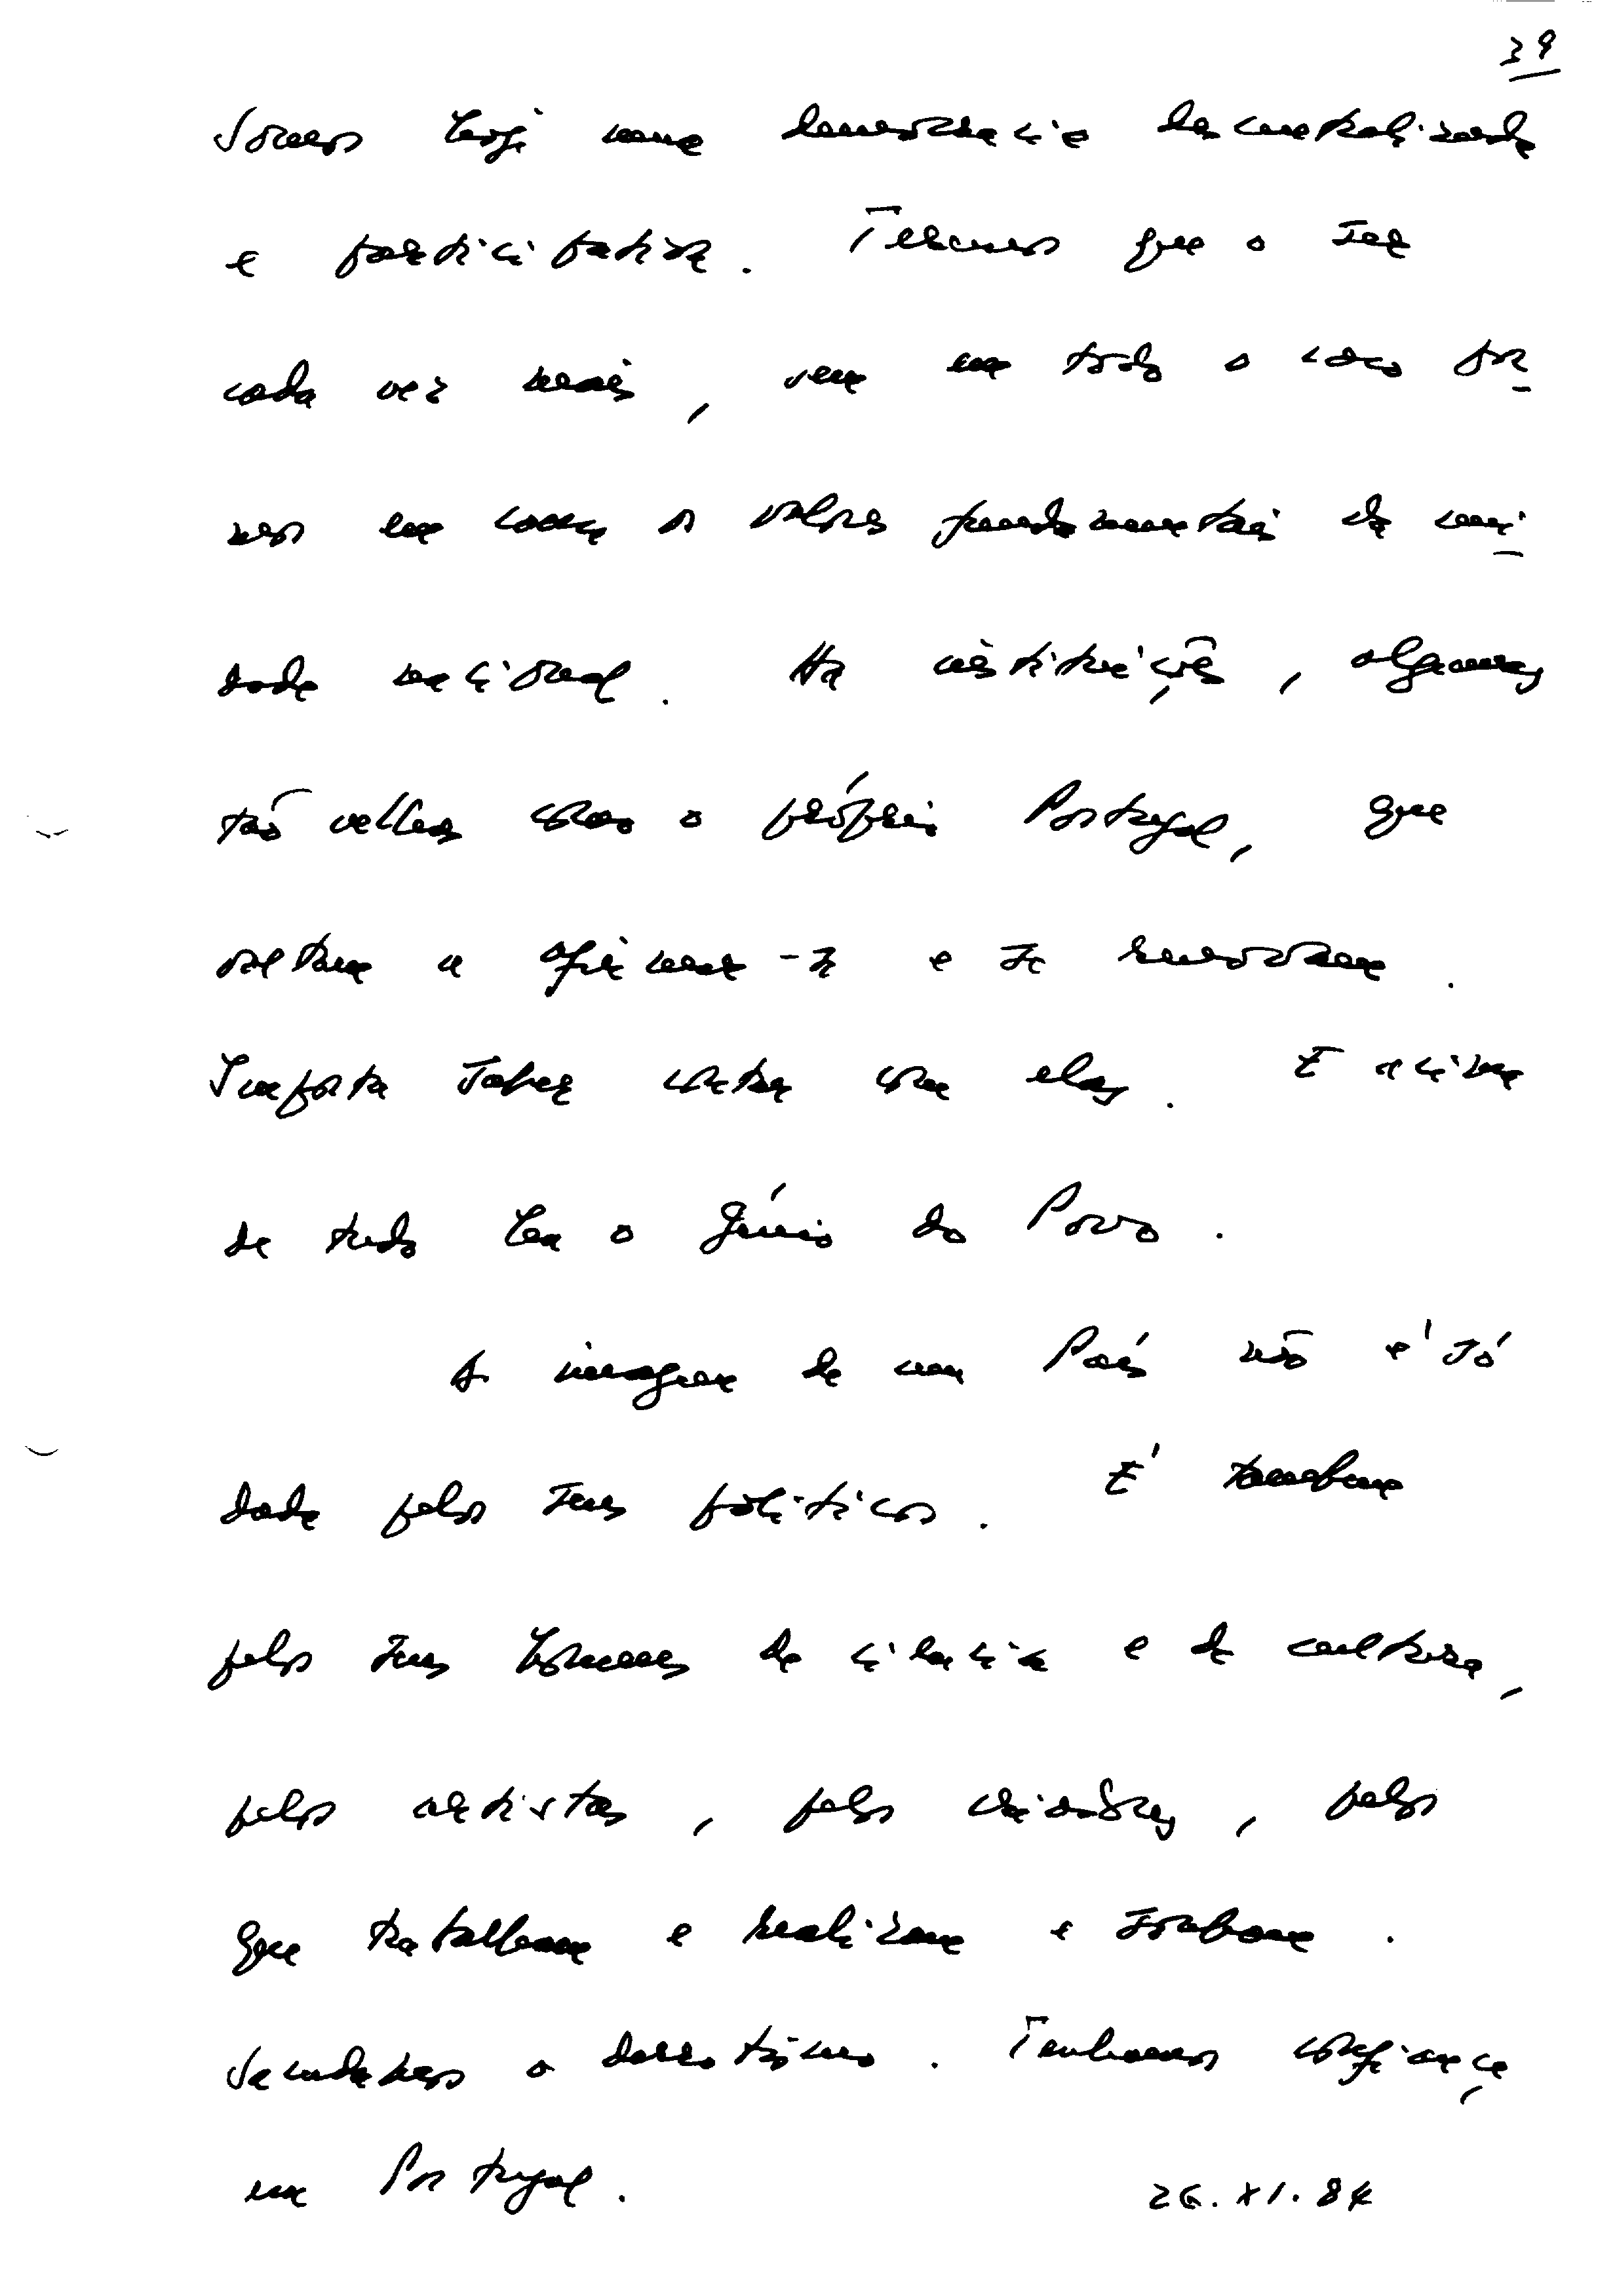 39
Somos hoje uma democracia descentralizada
e participativa. Teremos que o ser
cada vez mais, sem em todo o caso por-
mos em causa os valores fundamentais da uni-
dade nacional. Ha instituições, algumas
tão velhas como o próprio Portugal, que
voltam a afirmar-se e se renovam.
Importa saber contar com elas. E acima
de tudo há o génio do Povo.
A imagem de um País não é só
dada pelos seus políticos. E' tambem
pelos seus homens de ciência e de cultura,
pelos artistas, pelos criadores, pelos
que trabalham e realizam e sonham.
Sacudamos o derrotismo. Tenhamos confiança
em Portugal. 26.XI.84